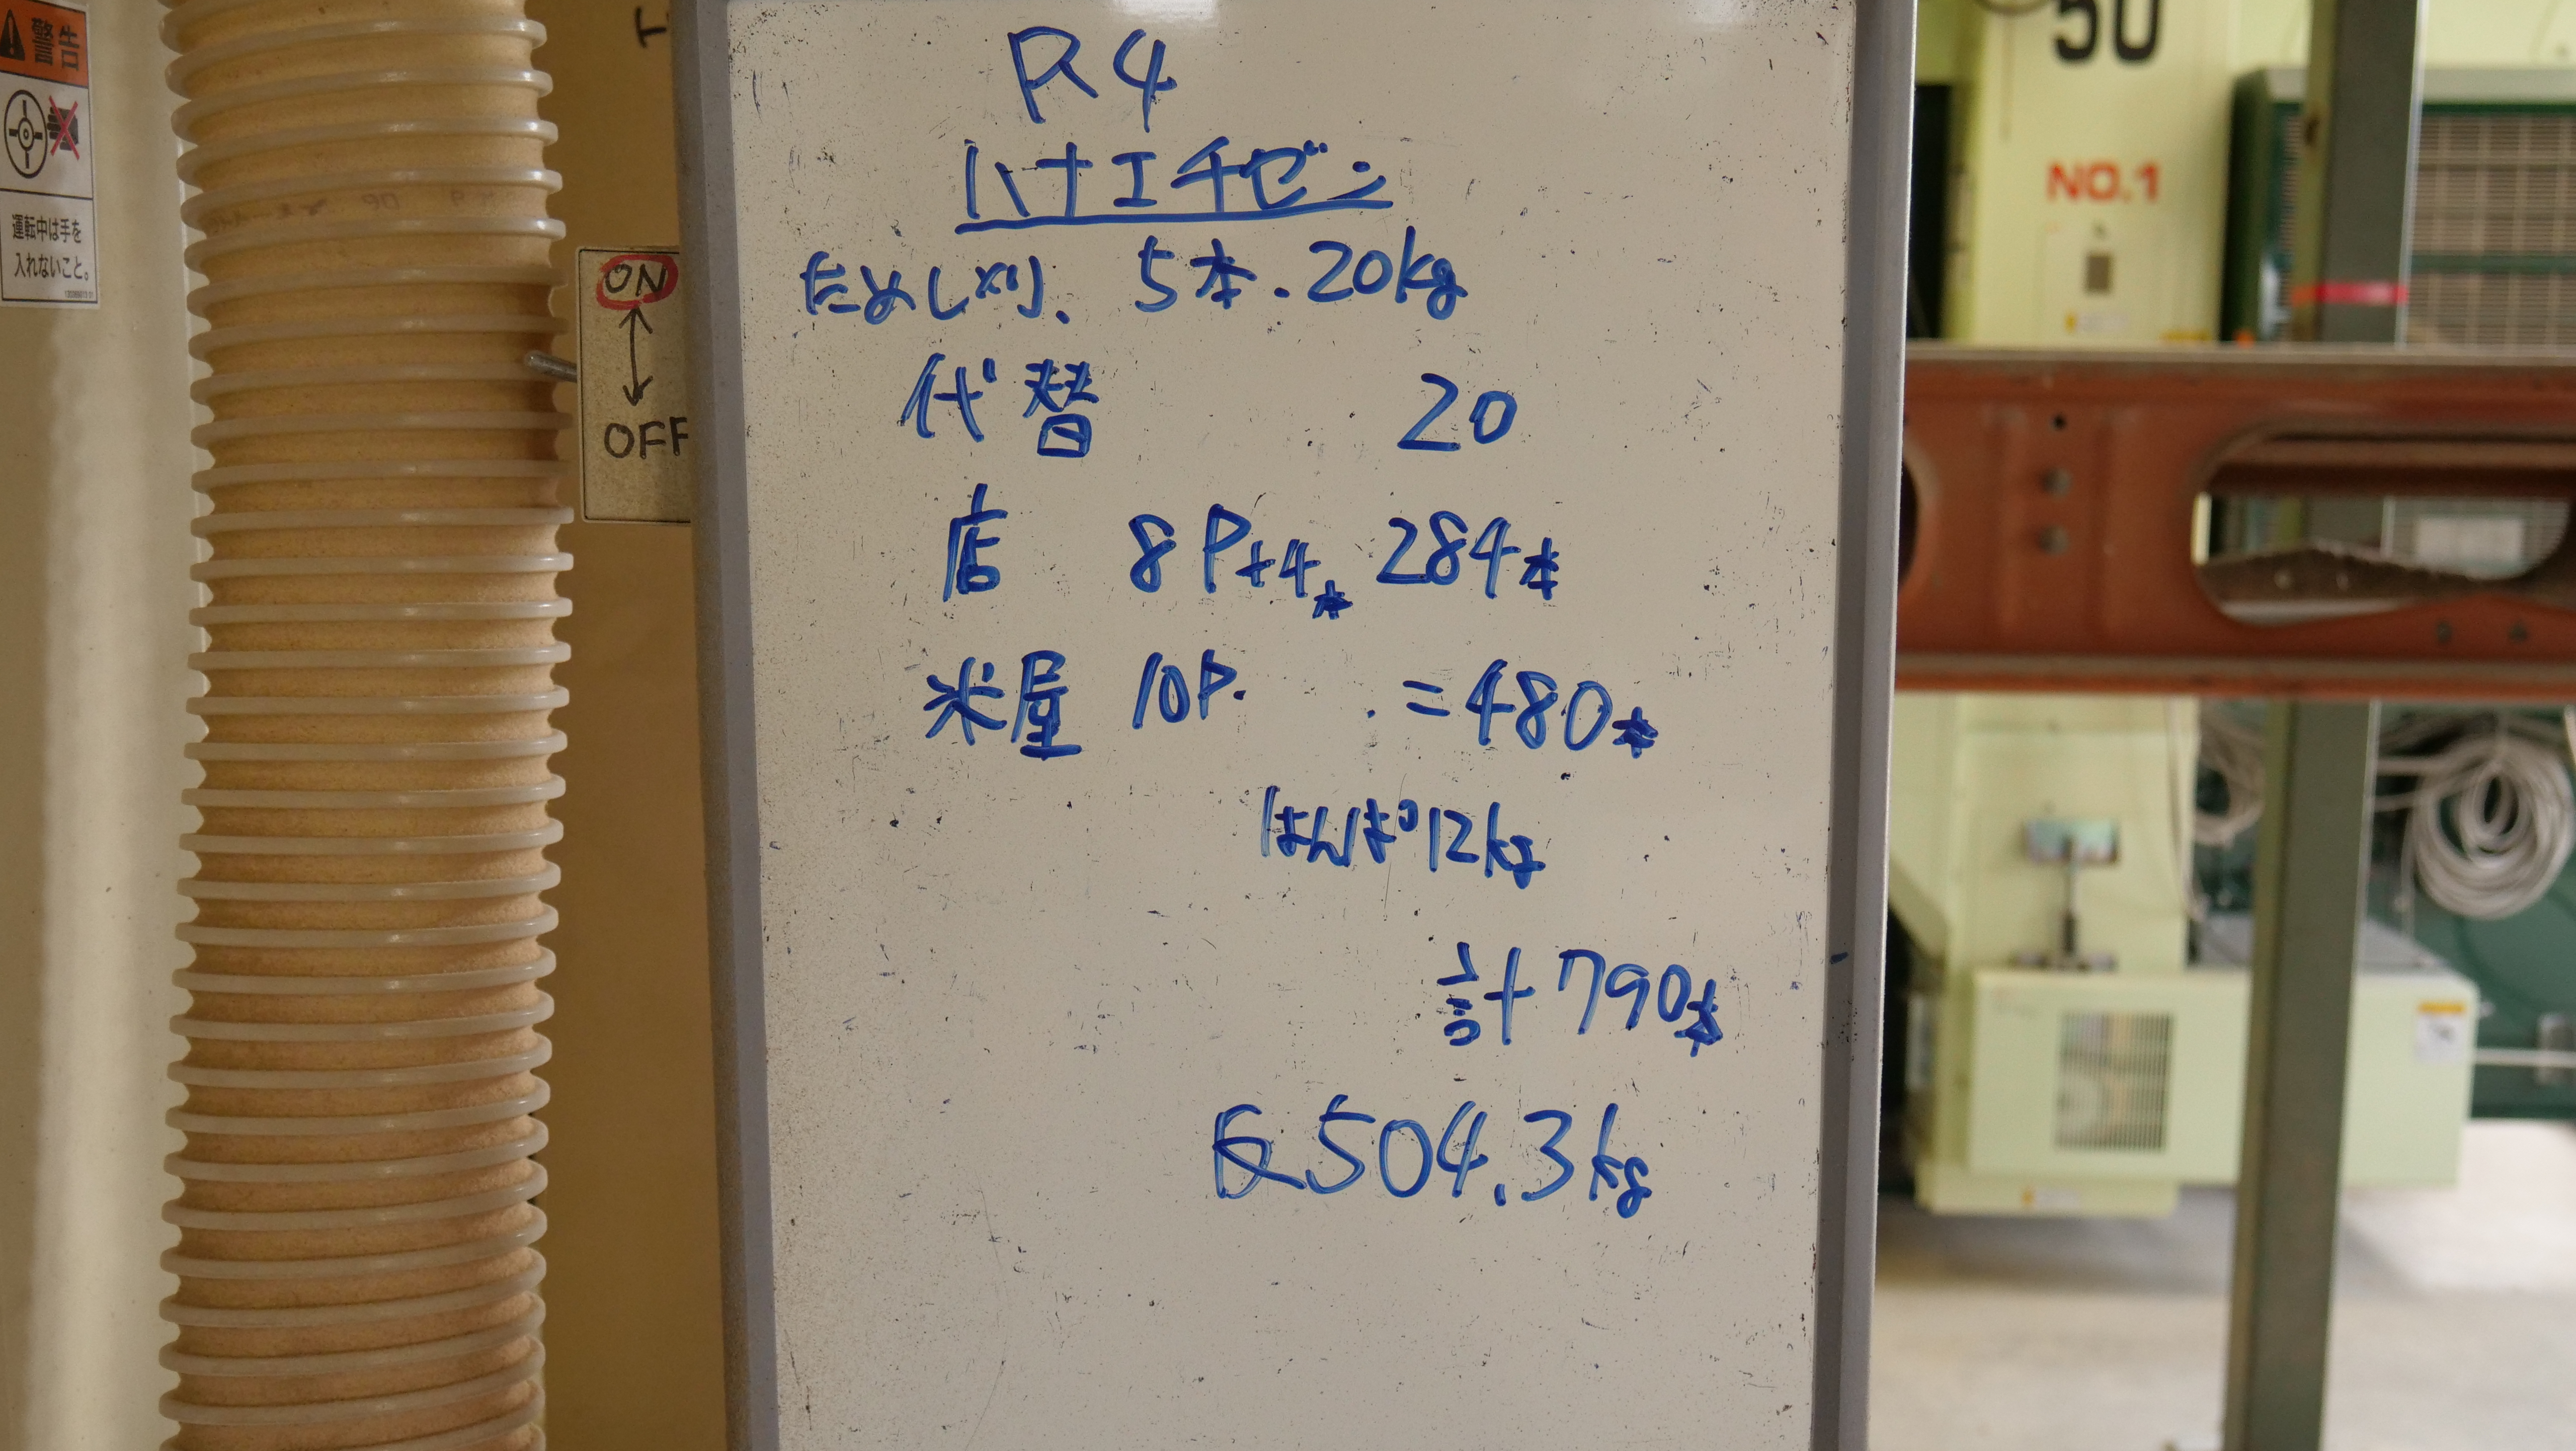 警告
運転中は手を
入れないこと。
ON
OFF
R4
ハナエチゼン
ためし刈、5本.20kg
代替 20
店 8P+4本 284本
米屋 10P. .=480本
はんぱ12kg
計790本
反504.3kg
50
NO.1